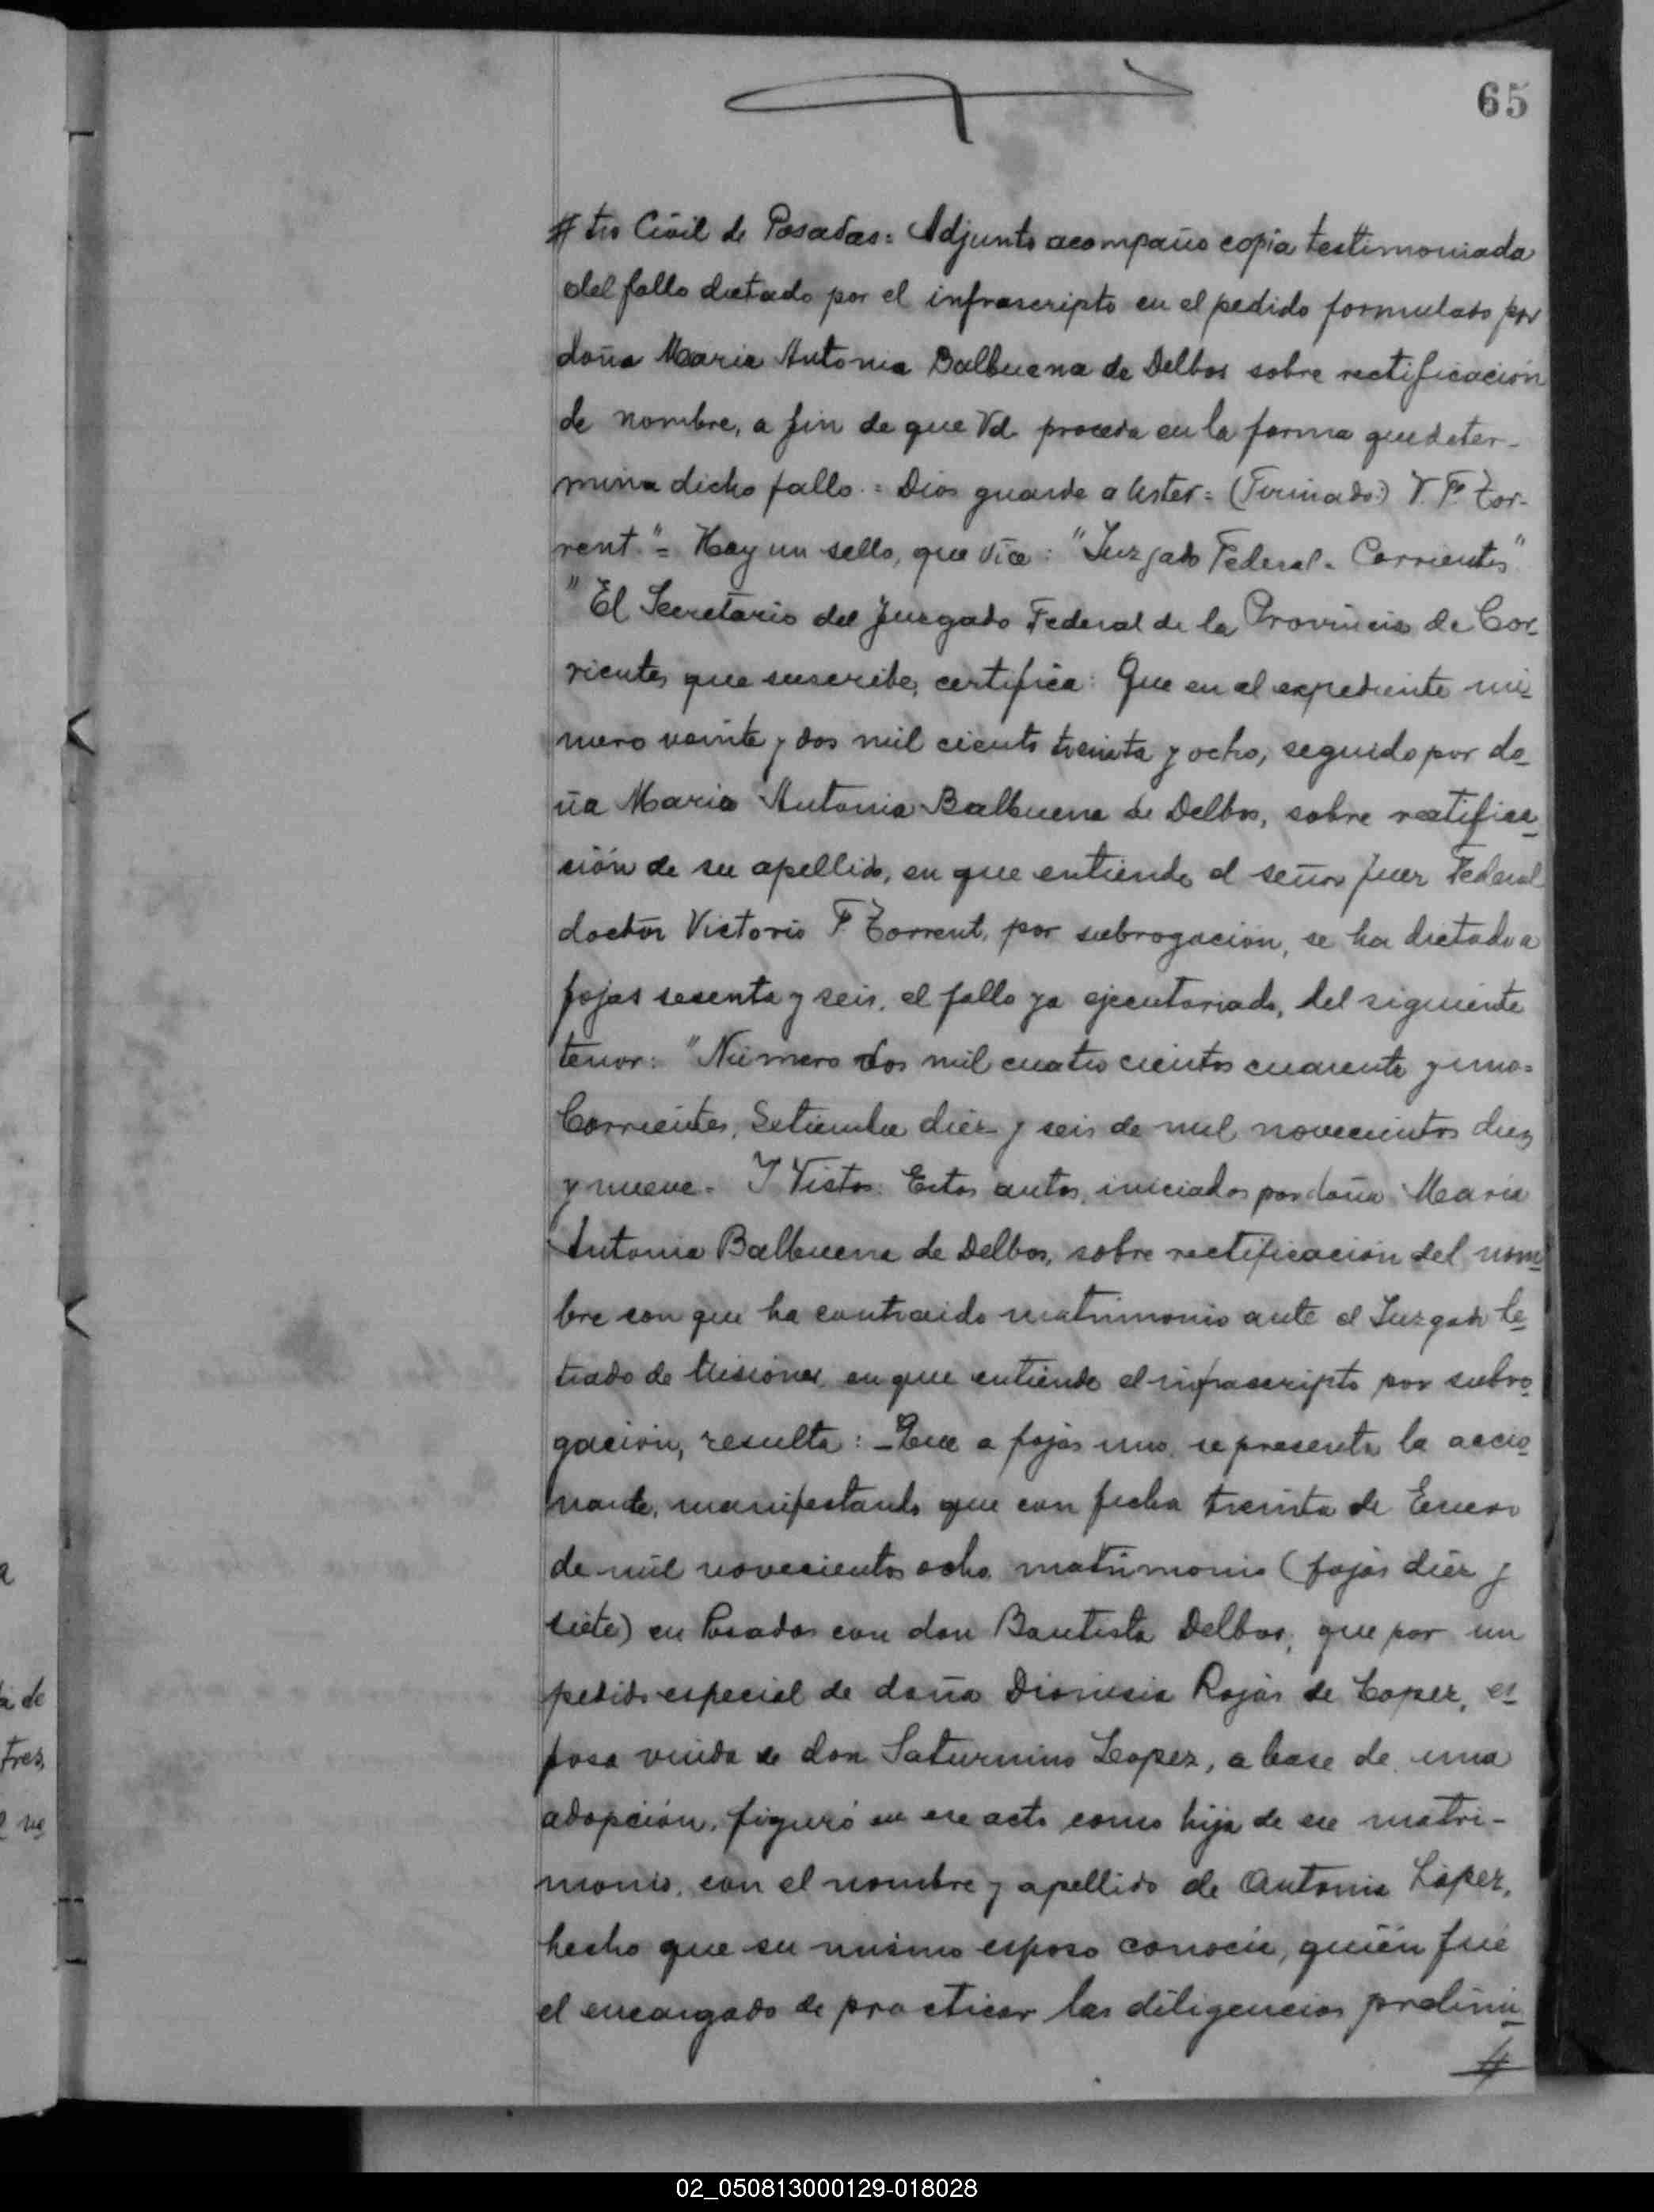 65
# tro Civil de Posadas = Adjunto acompaño copia testimoniada
del fallo dictado por el infrascripto en el pedido formulado por
doña Maria Antonia Balbuena de Delbos sobre rectificación
de nombre, a fin de que Vd. proceda en la forma que deter-
mina dicho fallo. = Dios guarde a Usted = (Firmado:) V. F. Tor-
rent." = Hay un sello, que dice: "Juzgado Federal - Corrientes"
"El Secretario del Juzgado Federal de la Provincia de Cor-
rientes que suscribe, certifica: Que en el expediente nú-
mero veinte y dos mil ciento treinta y ocho, seguido por do-
ña Maria Antonia Balbuena de Delbos, sobre rectifica-
ción de su apellido, en que entiende el señor Juez Federal
doctor Victorio F. Torrent, por subrogación, se ha dictado a
fojas sesenta y seis, el fallo ya ejecutoriado, del siguiente
tenor: "Número dos mil cuatro cientos cuarenta y uno =
Corrientes, Setiembre diez y seis de mil novecientos diez
y nueve - Y Vistos: Estos autos, iniciados por doña Maria
Antonia Balbuena de Delbos, sobre rectificación del nom-
bre con que ha contraido matrimonio ante el Juzgado le-
trado de Misiones en que entiende el infrascripto por subro-
gación, resulta: - Que a fojas uno, se presenta la accio-
nante, manifestando que con fecha treinta de Enero
de mil novecientos ocho matrimonio (fojas diez y
siete) en Posadas con don Bautista Delbos, que por un
pedido especial de doña Dionisia Rojas de Lopez, es-
posa viuda de don Saturnino Lopez, a base de una
adopción, figuró en ese acto como hija de ese matri-
monio, con el nombre y apellido de Antonia López,
hecho que su mismo esposo conocia, quién fué
el encargado de practicar las diligencias prelimi-
#
a
a de
tres,
02_050813000129-018028